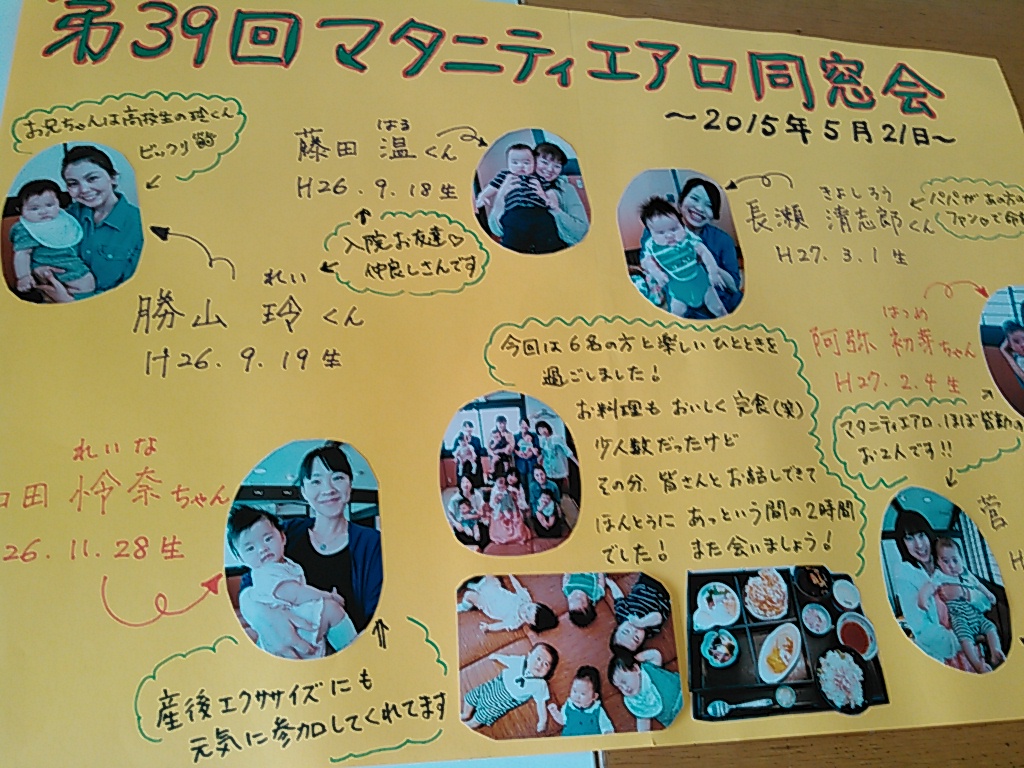 第39回マタニティエアロ同窓会
～2015年5月21日～
お兄ちゃんは高校生の玲くん
ビックリ
はる
藤田 温くん
H26.9.18生
入院お友達♡
仲良しさんです
れい
勝山 玲くん
H26.9.19生
きよしろう
長瀬 清志郎くん
H27.3.1生
パパがあの方の
ファン♡で命
はつめ
阿弥 初芽ちゃん
H27.2.4生
マタニティエアロ、ほぼ皆勤の
お2人です!!
菅
H
今回は6名の方と楽しいひとときを
過ごしました!
お料理もおいしく完食(笑)
少人数だったけど
その分、皆さんとお話しできて
ほんとうにあっという間の2時間
でした! また会いましょう!
れいな
田 怜奈ちゃん
26.11.28生
産後エクササイズにも
元気に参加してくれてます